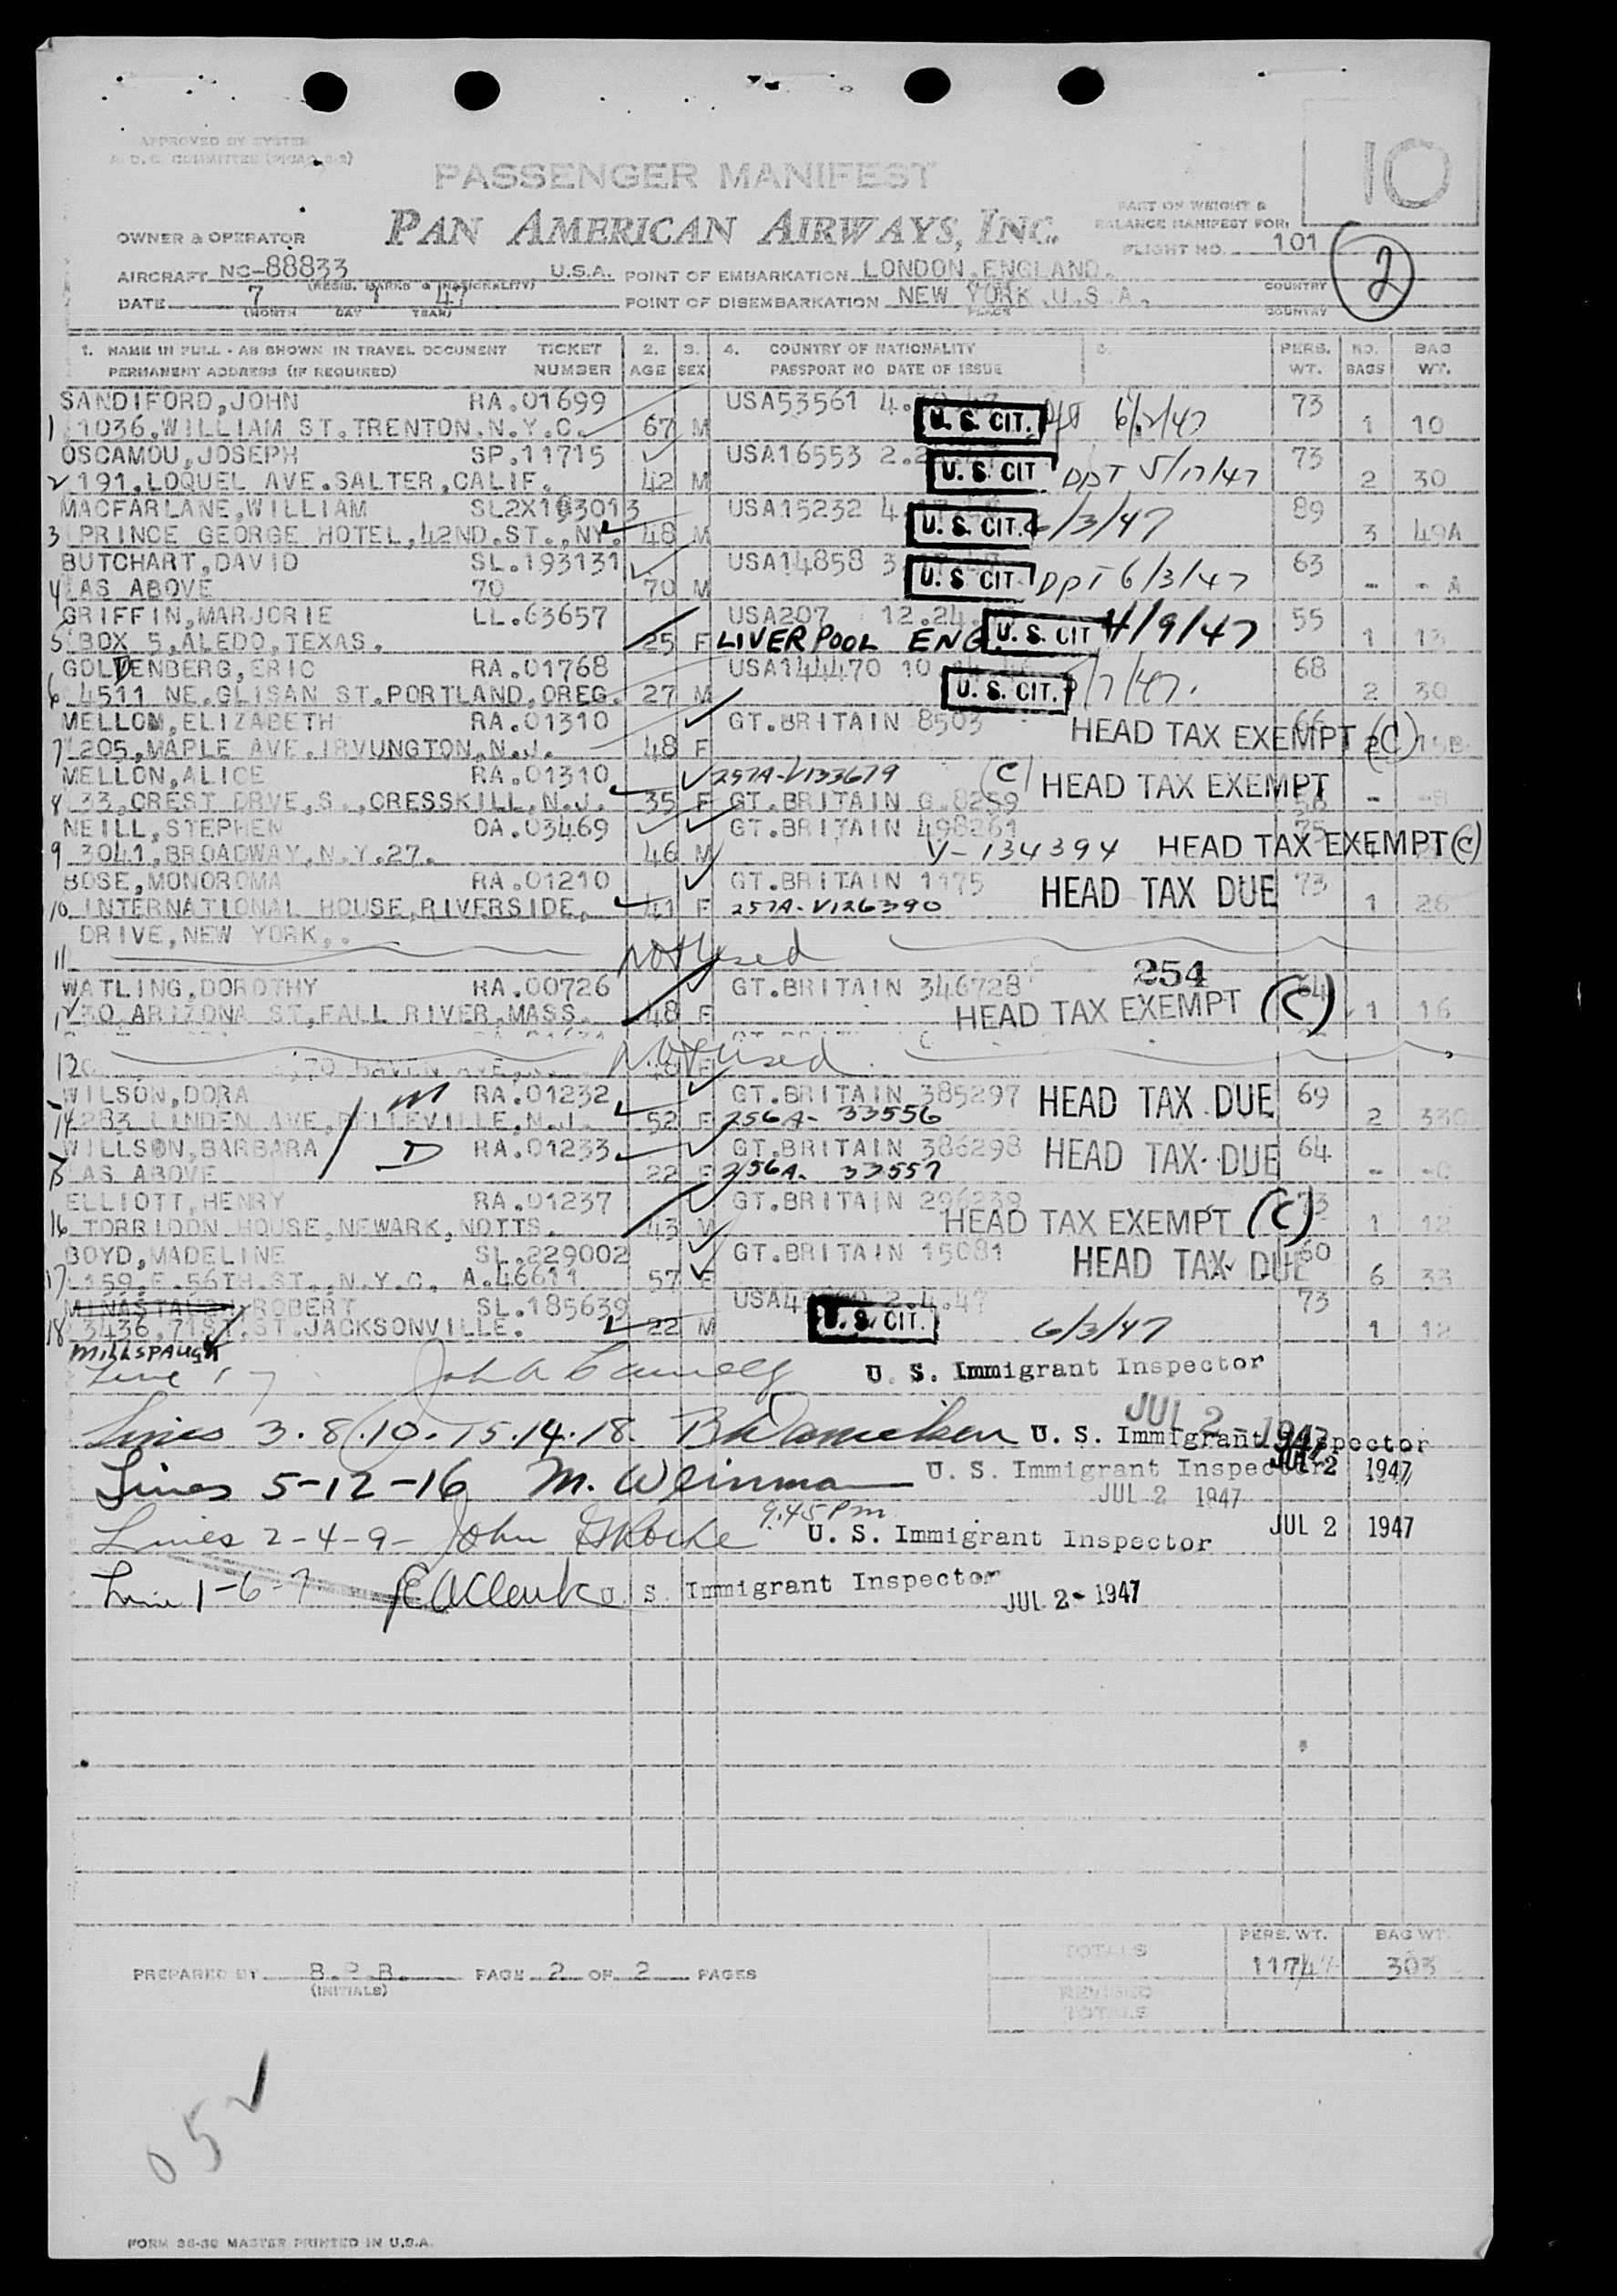 APPROVED BY SYSTEM
A. D. C. COMMITTEE
10
PASSENGER MANIFEST
PART OF WEIGHT &
BALANCE MANIFEST FOR:
PAN AMERICAN AIRWAYS, INC.
OWNER & OPERATOR
FLIGHT NO. 101
2
AIRCRAFT NC-88833 U.S.A. POINT OF EMBARKATION LONDON.ENGLAND.
(REGIS. MARKS & NATIONALITY) COUNTRY
DATE 7 1 47 POINT OF DISEMBARKATION NEW YORK.U.S.A.
(MONTH DAY YEAR) PLACE COUNTRY
1. NAME IN FULL - AS SHOWN IN TRAVEL DOCUMENT TICKET 2. 3. 4. COUNTRY OF NATIONALITY PERS. NO. BAG
PERMANENT ADDRESS (IF REQUIRED) NUMBER AGE SEX PASSPORT NO DATE OF ISSUE WT. BAGS WT.
SANDIFORD,JOHN RA.01699 USA53561 U. S. CIT. 6/2/47 73
1 1036,WILLIAM ST.TRENTON.N.Y.C. 67 M 1 10
OSCAMOU,JOSEPH SP.11715 USA16553 U. S. CIT DPT 5/17/47 73
2 191,LOQUEL AVE.SALTER,CALIF. 42 M 2 30
MACFARLANE,WILLIAM SL2X193013 USA15232 U. S. CIT. 6/3/47 89
3 PRINCE GEORGE HOTEL,42ND.ST.,NY. 48 M 3 49A
BUTCHART,DAVID SL.193131 USA14858 U. S. CIT. DPT 6/3/47 63
4 AS ABOVE 70 70 M - - A
GRIFFIN,MARJORIE LL.63657 USA207 12.24. U. S. CIT 4/9/47 55
5 BOX 5,ALEDO,TEXAS. 25 F LIVERPOOL ENG. 1 13
GOLDENBERG,ERIC RA.01768 USA144470 10 U. S. CIT. 68
6 4511 NE.GLISAN ST.PORTLAND,OREG. 27 M 2 30
MELLON,ELIZABETH RA.01310 GT.BRITAIN 8503 HEAD TAX EXEMPT (C) 66
7 205,MAPLE AVE.IRVUNGTON,N.J. 48 F 2 15B
MELLON,ALICE RA.01310 257A-V133679 (C) HEAD TAX EXEMPT
8 33,CREST DRVE,S.,CRESSKILL,N.J. 35 F GT.BRITAIN G.8259 58 - -B
NEILL,STEPHEN OA.03469 GT.BRITAIN 498261 75
9 3041,BROADWAY,N.Y.27. 46 M V-134394 HEAD TAX EXEMPT (C)
BOSE,MONOROMA RA.01210 GT.BRITAIN 1175 HEAD TAX DUE 73
10 INTERNATIONAL HOUSE,RIVERSIDE, 41 F 257A-V126390 1 26
DRIVE,NEW YORK,.
11 Not Used
WATLING,DOROTHY RA.00726 GT.BRITAIN 346728 254 64
12 30 ARIZONA ST,FALL RIVER,MASS. 48 F HEAD TAX EXEMPT (C) 1 16
13 Not used
WILSON,DORA M RA.01232 GT.BRITAIN 385297 HEAD TAX DUE 69
14 283 LINDEN AVE,BELLEVILLE,N.J. 52 F 256A- 33556 2 33C
WILLSON,BARBARA D RA.01233 GT.BRITAIN 386298 HEAD TAX DUE 64
15 AS ABOVE 22 F 256A- 33557 - -C
ELLIOTT,HENRY RA.01237 GT.BRITAIN 296238 73
16 TORRIDON HOUSE,NEWARK,NOTTS. 43 M HEAD TAX EXEMPT (C) 1 12
BOYD,MADELINE SL.229002 GT.BRITAIN 15081 HEAD TAX DUE 60
17 159,E.56TH.ST.,N.Y.C. A.46611 57 F 6 33
ROBERT SL.185639 USA4 2.4.47 73
18 3436,71ST.ST.JACKSONVILLE. 22 M U. S. CIT. 6/3/47 1 12
MILLSPAUGH
Line 17 U. S. Immigrant Inspector
JUL 2 - 1947
Lines 3.8.10.15.14.18. U. S. Immigrant Inspector
Lines 5-12-16 M. Weinman U. S. Immigrant Inspector JUL 2 1947
JUL 2 1947
9.45 Pm
Lines 2-4-9- John U. S. Immigrant Inspector JUL 2 1947
Line 1-6-7 U S Immigrant Inspector JUL 2 - 1947
TOTALS PERS. WT. BAG WT.
1174 303
PREPARED BY B.P.B. PAGE 2 OF 2 PAGES
(INITIALS)
REVISED
TOTALS
052
FORM 36-30 MASTER PRINTED IN U.S.A.